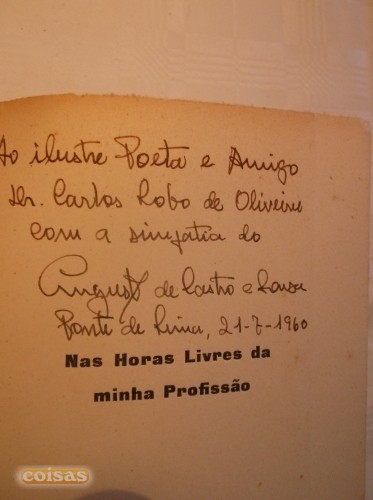 Ao ilustre Poeta e Amigo
Dr. Carlos Lobo de Oliveira
com a simpatia do
Augusto de Castro e Sousa
Ponte de Lima, 21-7-1960
Nas Horas Livres da
minha Profissão
coisas